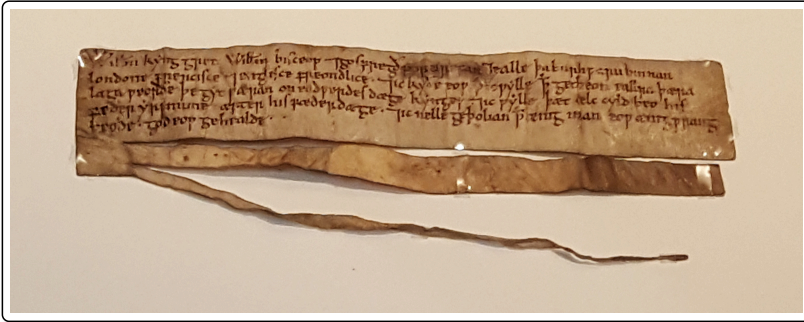 Willm kyng gret Willm bisceop ⁊ gosfregð portirefan ⁊ ealle þa burhwaru binnan
londone frencisce ⁊ englisce freondlice · ⁊ ic kyðe eow þæt ic wylle þæt get beon eallra þæra
laga weorðe þe gyt wæran on eadwerdes dæge kynges · ⁊ ic wylle þæt ælc cyld beo his
fæder yrfnume æfter his fæder dæge · ⁊ ic nelle geþolian þæt ænig man eow ænig wrang
beode · god eow gehealde ·